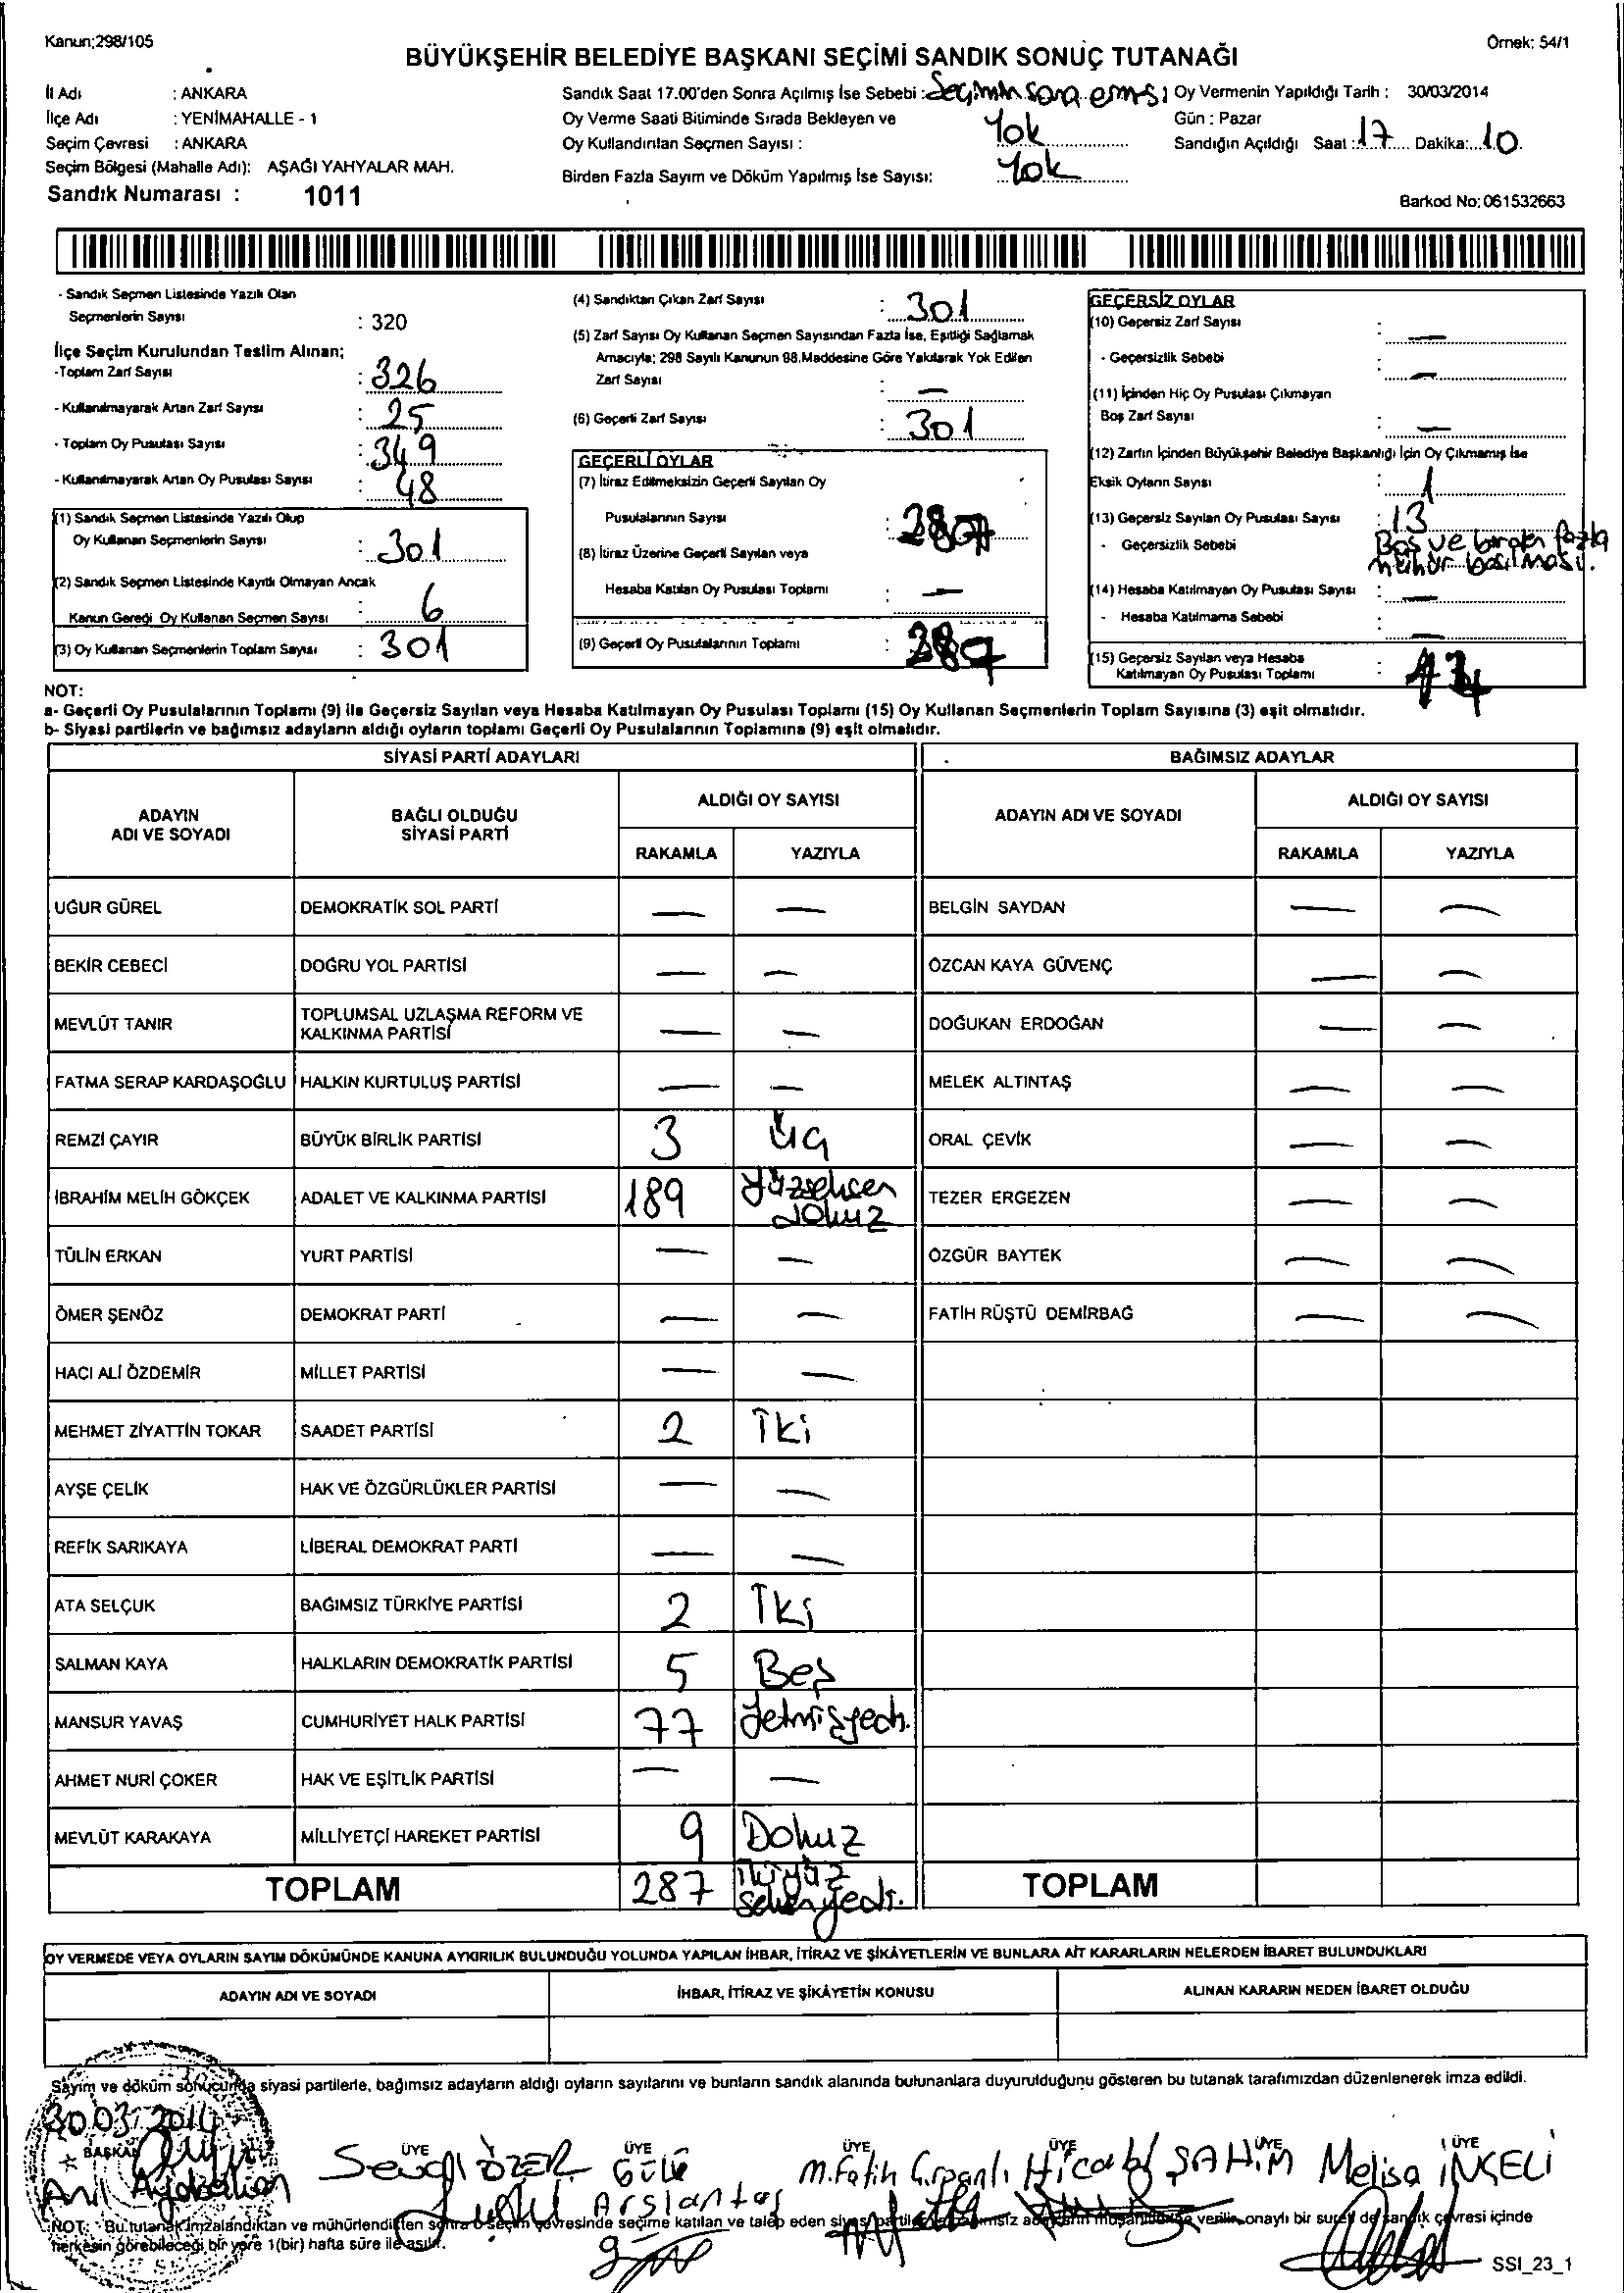 Kanun;298/105
Örnek: 54/1
BÜYÜKŞEHİR BELEDİYE BAŞKANI SEÇİMİ SANDIK SONUÇ TUTANAĞI
İl Adı : ANKARA
İlçe Adı : YENİMAHALLE - 1
Seçim Çevresi : ANKARA
Seçim Bölgesi (Mahalle Adı): AŞAĞI YAHYALAR MAH.
Sandık Numarası : 1011
Sandık Saat 17.00'den Sonra Açılmış İse Sebebi : Seçimin sona
Oy Verme Saati Bitiminde Sırada Bekleyen ve
Oy Kullandırılan Seçmen Sayısı : Yok
Birden Fazla Sayım ve Döküm Yapılmış İse Sayısı: Yok
Oy Vermenin Yapıldığı Tarih : 30/03/2014
Gün : Pazar
Sandığın Açıldığı Saat : 17 Dakika: 10
Barkod No: 061532663
- Sandık Seçmen Listesinde Yazılı Olan
Seçmenlerin Sayısı : 320
İlçe Seçim Kurulundan Teslim Alınan;
-Toplam Zarf Sayısı : 326
- Kullanılmayarak Artan Zarf Sayısı : 25
- Toplam Oy Pusulası Sayısı : 349
- Kullanılmayarak Artan Oy Pusulası Sayısı : 48
(1) Sandık Seçmen Listesinde Yazılı Olup
Oy Kullanan Seçmenlerin Sayısı : 301
(2) Sandık Seçmen Listesinde Kayıtlı Olmayan Ancak
Kanun Gereği Oy Kullanan Seçmen Sayısı : 6
(3) Oy Kullanan Seçmenlerin Toplam Sayısı : 301
(4) Sandıktan Çıkan Zarf Sayısı : 301
(5) Zarf Sayısı Oy Kullanan Seçmen Sayısından Fazla İse, Eşitliği Sağlamak
Amacıyla; 298 Sayılı Kanunun 98.Maddesine Göre Yakılarak Yok Edilen
Zarf Sayısı : —
(6) Geçerli Zarf Sayısı : 301
GEÇERLİ OYLAR
(7) İtiraz Edilmeksizin Geçerli Sayılan Oy
Pusulalarının Sayısı : 287
(8) İtiraz Üzerine Geçerli Sayılan veya
Hesaba Katılan Oy Pusulası Toplamı : —
(9) Geçerli Oy Pusulalarının Toplamı : 287
GEÇERSİZ OYLAR
(10) Geçersiz Zarf Sayısı : —
- Geçersizlik Sebebi : —
(11) İçinden Hiç Oy Pusulası Çıkmayan
Boş Zarf Sayısı : —
(12) Zarfın İçinden Büyükşehir Belediye Başkanlığı İçin Oy Çıkmamış İse
Eksik Oyların Sayısı : 1
(13) Geçersiz Sayılan Oy Pusulası Sayısı : 13
- Geçersizlik Sebebi : Boş ve birden fazla
mühür basılması.
(14) Hesaba Katılmayan Oy Pusulası Sayısı : —
- Hesaba Katılmama Sebebi : —
(15) Geçersiz Sayılan veya Hesaba
Katılmayan Oy Pusulası Toplamı : 14
NOT:
a- Geçerli Oy Pusulalarının Toplamı (9) ile Geçersiz Sayılan veya Hesaba Katılmayan Oy Pusulası Toplamı (15) Oy Kullanan Seçmenlerin Toplam Sayısına (3) eşit olmalıdır.
b- Siyasi partilerin ve bağımsız adayların aldığı oyların toplamı Geçerli Oy Pusulalarının Toplamına (9) eşit olmalıdır.
SİYASİ PARTİ ADAYLARI
BAĞIMSIZ ADAYLAR
ADAYIN ADI VE SOYADI
BAĞLI OLDUĞU SİYASİ PARTİ
ALDIĞI OY SAYISI
RAKAMLA YAZIYLA
ADAYIN ADI VE SOYADI
ALDIĞI OY SAYISI
RAKAMLA YAZIYLA
UĞUR GÜREL DEMOKRATİK SOL PARTİ — — BELGİN SAYDAN — —
BEKİR CEBECİ DOĞRU YOL PARTİSİ — — ÖZCAN KAYA GÜVENÇ — —
MEVLÜT TANIR TOPLUMSAL UZLAŞMA REFORM VE KALKINMA PARTİSİ — — DOĞUKAN ERDOĞAN — —
FATMA SERAP KARDAŞOĞLU HALKIN KURTULUŞ PARTİSİ — — MELEK ALTINTAŞ — —
REMZİ ÇAYIR BÜYÜK BİRLİK PARTİSİ 3 Üç ORAL ÇEVİK — —
İBRAHİM MELİH GÖKÇEK ADALET VE KALKINMA PARTİSİ 189 Yüzseksen dokuz TEZER ERGEZEN — —
TÜLİN ERKAN YURT PARTİSİ — — ÖZGÜR BAYTEK — —
ÖMER ŞENÖZ DEMOKRAT PARTİ — — FATİH RÜŞTÜ DEMİRBAĞ — —
HACI ALİ ÖZDEMİR MİLLET PARTİSİ — —
MEHMET ZİYATTİN TOKAR SAADET PARTİSİ 2 İki
AYŞE ÇELİK HAK VE ÖZGÜRLÜKLER PARTİSİ — —
REFİK SARIKAYA LİBERAL DEMOKRAT PARTİ — —
ATA SELÇUK BAĞIMSIZ TÜRKİYE PARTİSİ 2 İki
SALMAN KAYA HALKLARIN DEMOKRATİK PARTİSİ 5 Beş
MANSUR YAVAŞ CUMHURİYET HALK PARTİSİ 77 Yetmişyedi.
AHMET NURİ ÇOKER HAK VE EŞİTLİK PARTİSİ — —
MEVLÜT KARAKAYA MİLLİYETÇİ HAREKET PARTİSİ 9 Dokuz
TOPLAM 287 ikiyüz seksenyedi. TOPLAM
OY VERMEDE VEYA OYLARIN SAYIM DÖKÜMÜNDE KANUNA AYKIRILIK BULUNDUĞU YOLUNDA YAPILAN İHBAR, İTİRAZ VE ŞİKÂYETLERİN VE BUNLARA AİT KARARLARIN NELERDEN İBARET BULUNDUKLARI
ADAYIN ADI VE SOYADI İHBAR, İTİRAZ VE ŞİKÂYETİN KONUSU ALINAN KARARIN NEDEN İBARET OLDUĞU
Sayım ve döküm sonucunda siyasi partilerle, bağımsız adayların aldığı oyların sayılarını ve bunların sandık alanında bulunanlara duyurulduğunu gösteren bu tutanak tarafımızdan düzenlenerek imza edildi.
30.03.2014
BAŞKAN ÜYE ÜYE ÜYE ÜYE ÜYE ÜYE
Anıl Sevgi ÖZER Gülü Arslantaş M.Fatih Hicabi ŞAHİN Melisa İNCELİ
NOT: Bu tutanak imzalandıktan ve mühürlendikten sonra o seçim çevresinde seçime katılan ve talep eden siyasi partiler verilir. onaylı bir sureti de sandık çevresi içinde
herkesin görebileceği bir yere 1(bir) hafta süre ile asılır.
SSI_23_1